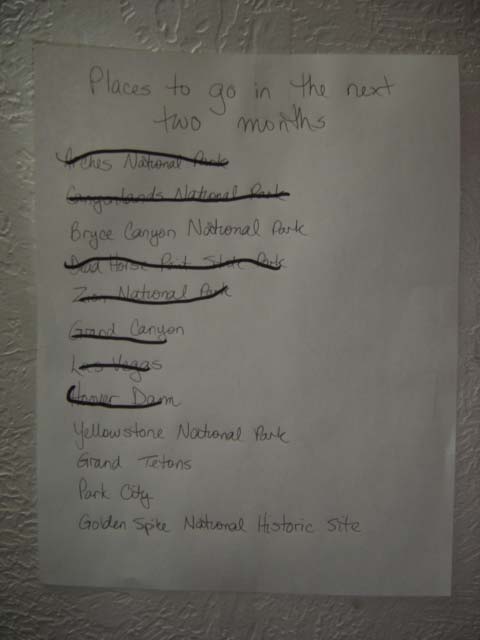 Places to go in the next
two months
Arches National Park
Canyonlands National Park
Bryce Canyon National Park
Dead Horse Point State Park
Zion National Park
Grand Canyon
Las Vegas
Hoover Dam
Yellowstone National Park
Grand Tetons
Park City
Golden Spike National Historic Site